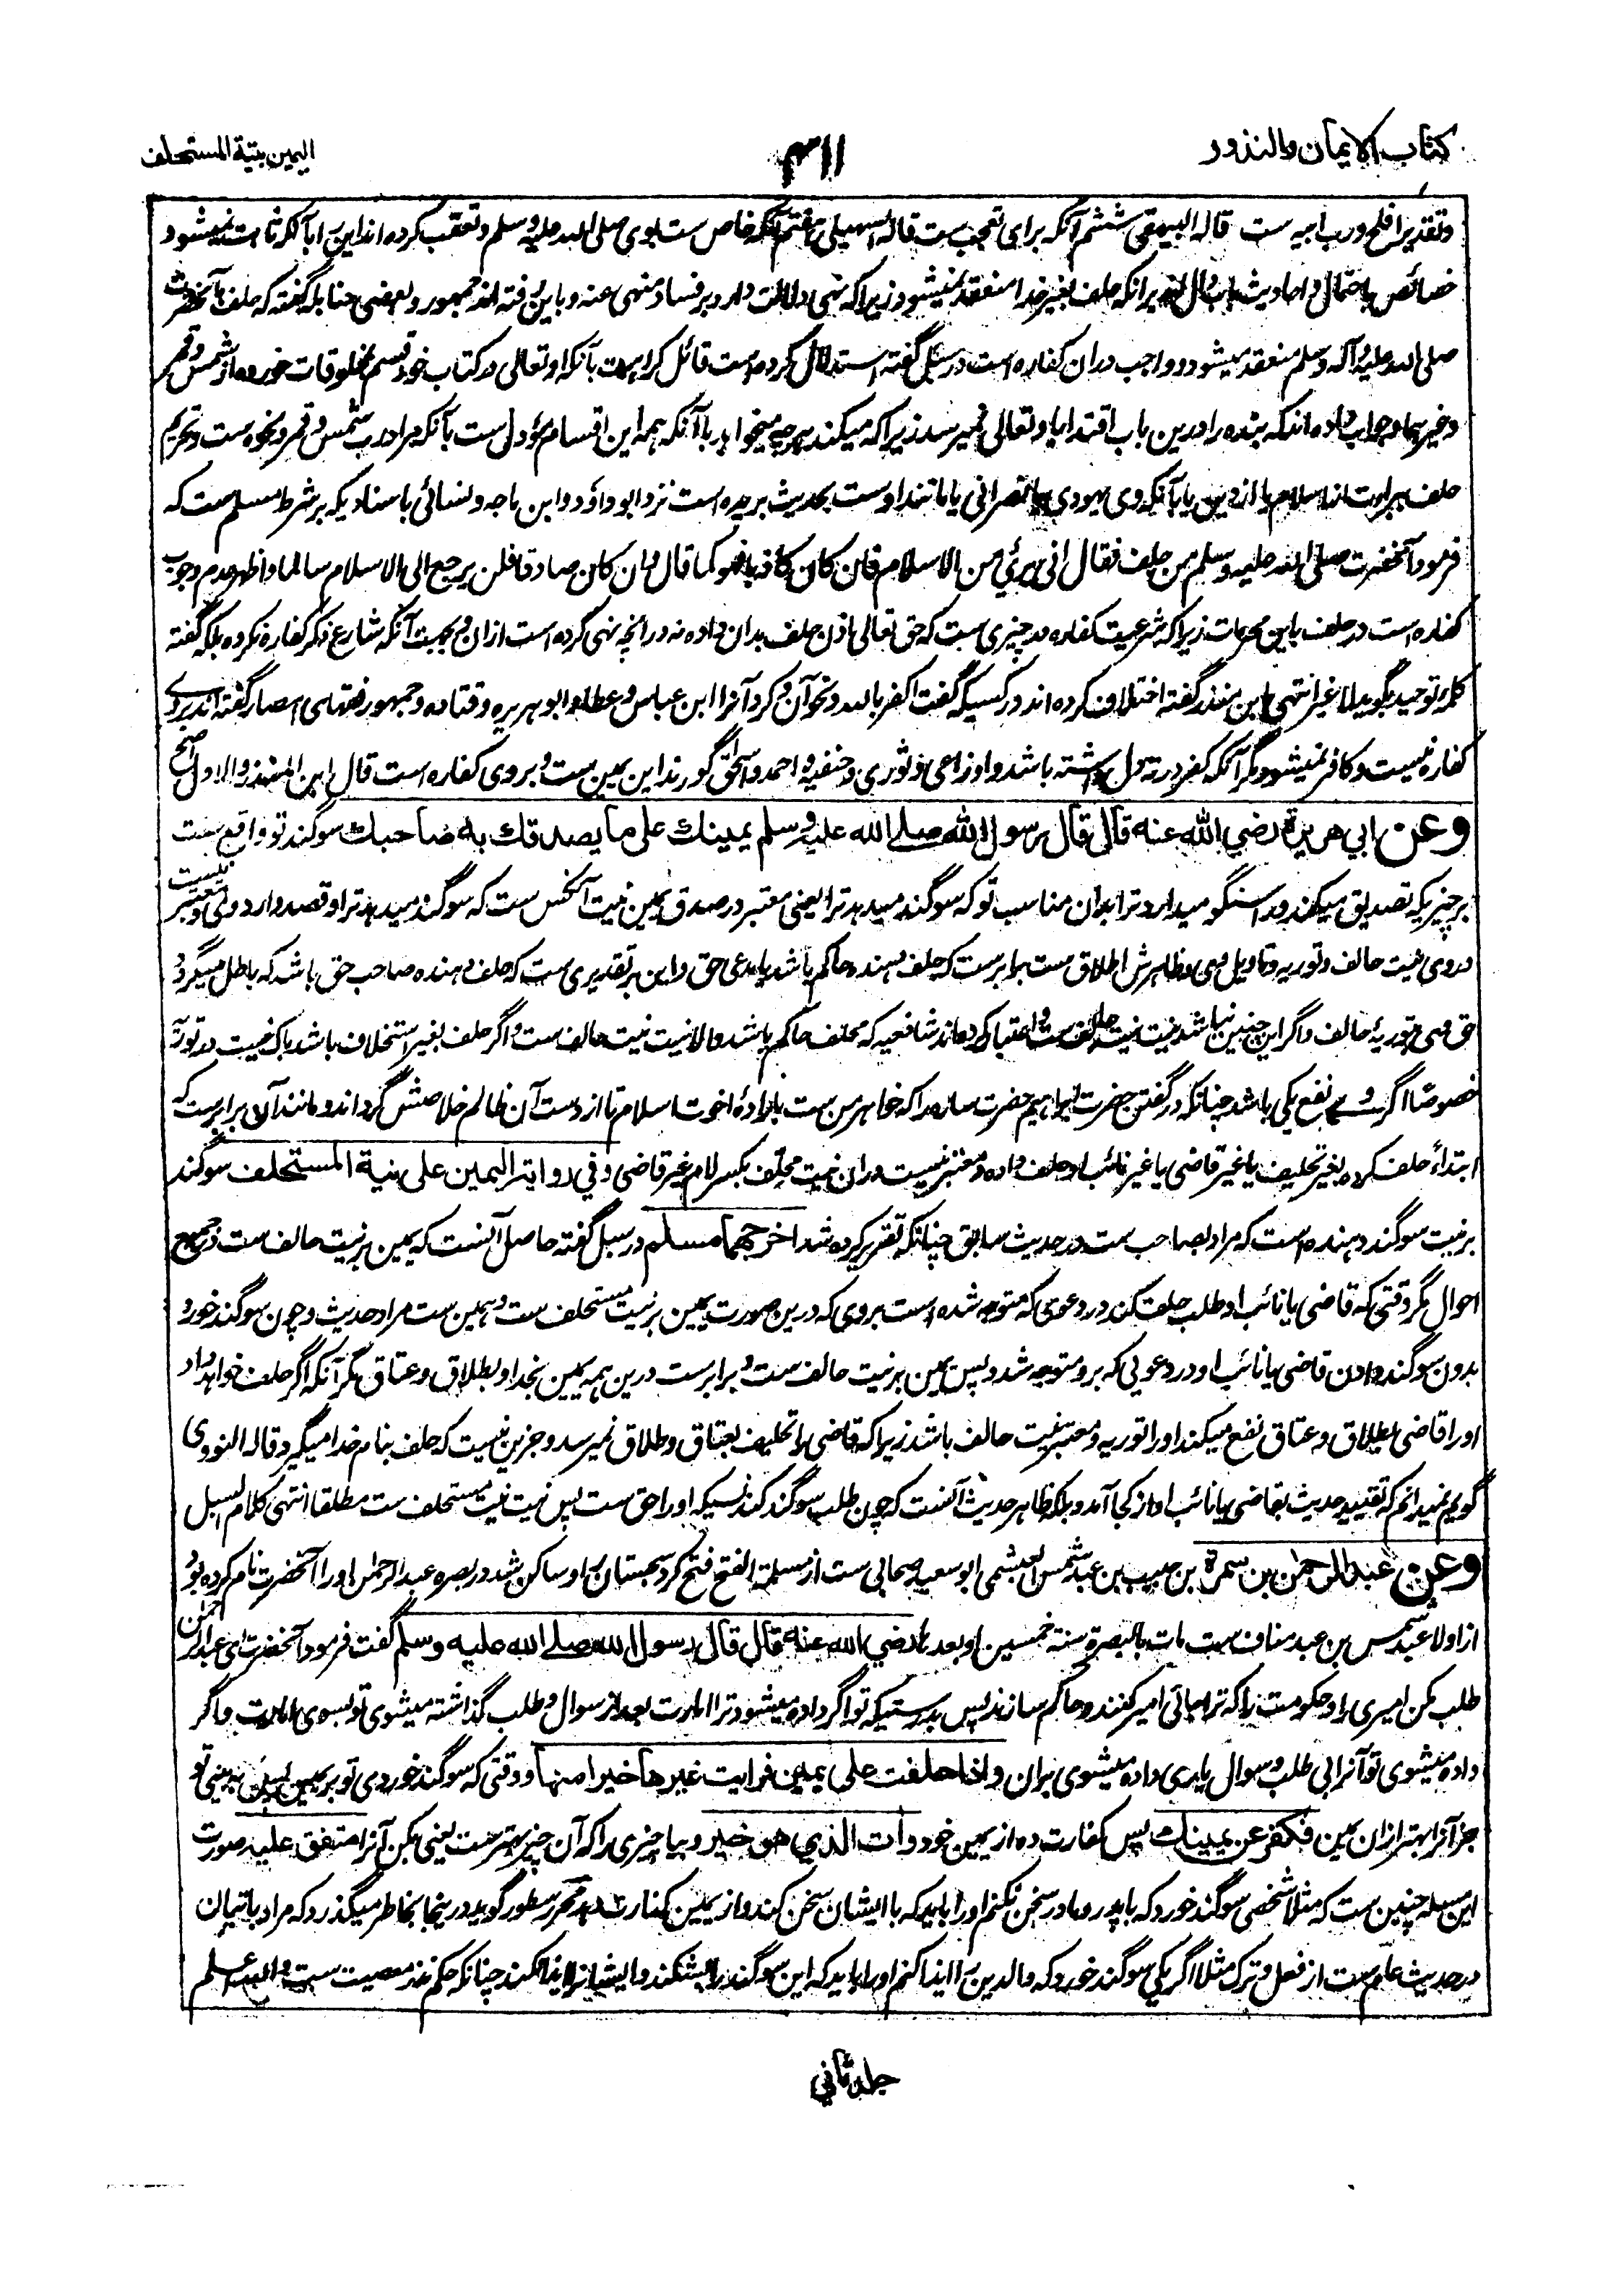 کتاب الایمان والنذور
۳۱۱
الیمین بنیة المستحلف
وتقدیر افلح ورب ابیه ست قاله البیهقی ششم آنکه برای تعجب ست قاله السهیلی هفتم آنکه خاص ست بوی صلی الله علیه وسلم وتعقب کرده اند این را بآنکه ثابت نمیشود
خصائص باحتمال و احادیث باب دال اند برانکه حلف بغیر خدا منعقد نمیشود زیرا که نهی دلالت دارد بر فساد منهی عنه و باین رفته اند جمهور و بعضی حنابله گفته که حلف بآنحضرت
صلی الله علیه وآله وسلم منعقد میشود و واجب دران کفاره است در سبل گفته استدلال کرده است قائل کراهت بآنکه او تعالی در کتاب خود قسم بمخلوقات خورده از شمس وقمر
وغیرهما وجواب داده اند که بنده را درین باب اقتدا باو تعالی نمیرسد زیرا که میکند هرچه میخواهد باآنکه همه این اقسام مؤول ست بآنکه مراد رب شمس و قمر ونحوه ست وتحریم
حلف ببراءت از اسلام یا از دین یا بآنکه وی یهودی یا نصرانی یا مانند اوست بحدیث بریده است نزد ابو داؤد وابن ماجه ونسائی باسنادیکه بر شرط مسلم ست که
فرمود آنحضرت صلی الله علیه وسلم من حلف فقال انی برئ من الاسلام فان کان کاذبا فهو کما قال وان کان صادقا فلن یرجع الی الاسلام سالما واظهر عدم وجوب
کفاره است در حلف باین محرمات زیرا که شرعیت کفاره در چیزی ست که حق تعالی اذن حلف بدان داده نه در انچه نهی کرده است ازان وبجهت آنکه شارع ذکر کفاره نکرده بلکه گفته
کلمه توحید بگوید لا غیر انتهی ابن منذر گفته اختلاف کرده اند در کسیکه گفت اکفر بالله ونحو آن و کرد آنرا ابن عباس و عطا و ابو هریره و قتاده و جمهور فقهای امصار گفته اند بروی
کفاره نیست و کافر نمیشود مگر آنکه کفر در ته دل داشته باشد و اوزاعی و ثوری و حنفیه و احمد و اسحق گویند این یمین ست و بروی کفاره است قال ابن المنذر والاول اصح
وعن ابي هريرة رضي الله عنه قال قال رسول الله صلے الله عليه وسلم يمينك على ما يصدقك به صاحبك سوگند تو واقع ست
بر چیزیکه تصدیق میکند و راستگو میدارد ترا بدان مناسب تو که سوگند میدهد ترا یعنی معتبر در صدق یمین نیت آنکس ست که سوگند میدهد ترا و قصد وارد وی و معتبر نیست
دروی نیت حالف و توریه و تاویل وی و ظاهرش اطلاق ست برابر ست که حلف دهنده حاکم باشد یا مدعی حق و این بر تقدیری ست که حلف دهنده صاحب حق باشد که باطل میگردد
حق وی بتوریهٔ حالف و اگر این چنین نباشد نیت نیت حالف ست و اعتبار کرده اند شافعیه که محلف حاکم باشد والا نیت نیت حالف ست و اگر حلف بغیر استحلاف باشد باکی نیست در توریه
خصوصًا اگر وے نفع یکی باشد چنانکه در گفتن حضرت ابراهیم حضرت ساره را که خواهر من ست بارادهٔ اخوت اسلام تا از دست آن ظالم خلاصش گرداند و مانند آن برابر ست که
ابتداءً حلف کرد بغیر تحلیف یا غیر قاضی یا غیر نائب او حلف داده و معتبر نیست دران نیت محلّف بکسر لام غیر قاضی وفي رواية اليمين على نية المستحلف سوگند
بر نیت سوگند دهنده است که مراد بصاحب ست در حدیث سابق چنانکه تقریر کرده شد اخرجهما مسلم در سبل گفته حاصل آنست که یمین بر نیت حالف ست در جمیع
احوال مگر وقتی که قاضی یا نائب او طلب حلف کند در دعوی که متوجه شده است بروی که درین صورت یمین بر نیت مستحلف ست و همین ست مراد حدیث و چون سوگند خورد
بدون سوگند دادن قاضی یا نائب او در دعوی که برو متوجه شد و پس یمین بر نیت حالف ست و برابر ست درین همه یمین بخدا و بطلاق و عتاق مگر آنکه اگر حلف خواهد داد
او را قاضی بطلاق و عتاق نفع میکند او را توریه و معتبر نیت حالف باشد زیرا که قاضی را تحلیف بعتاق و طلاق نمیرسد و جزین نیست که حلف بنام خدا میگیرد قاله النووی
گویم نمیدانم که تقیید حدیث بقاضی یا نائب او از کجا آمد و بلکه ظاهر حدیث آنست که چون طلب سوگند کند کسیکه او را حق ست پس نیت نیت مستحلف ست مطلقا انتهی کلام السبل
وعن عبد الرحمن بن سمرة بن حبیب بن عبد شمس العبشمی ابو سعید صحابی ست از مسلمة الفتح فتح کرد سجستان را و ساکن شد در بصره عبد الرحمن او را آنحضرت نام کرده بود
از اولاد عبد شمس بن عبد مناف ست مات بالبصرة سنة خمسین او بعدها رضي الله عنه قال قال رسول الله صلے الله عليه وسلم گفت فرمود آنحضرت ای عبد الرحمن
طلب مکن امیری را و حکومت را که ترا جائی امیر کنند و حاکم سازند پس بدرستیکه تو اگر داده میشود ترا امارت بعد از سوال و طلب گذاشته میشوی تو بسوی امارت واگر
داده میشوی تو آنرا بی طلب و سوال یاری داده میشوی بران واذا حلفت على يمين فرايت غيرها خيرا منها و وقتی که سوگند خوردی تو بر یمین پس بینی تو
جز آنرا بهتر ازان یمین فكفر عن يمينك پس کفارت ده از یمین خود وأت الذي هو خير و بیا چیزی را که آن چیز بهتر ست یعنی بکن آنرا متفق علیه صورت
این مسئله چنین ست که مثلا شخصی سوگند خورد که با پدر و مادر سخن نکنم او را باید که با ایشان سخن کند و از یمین کفارت دهد محرر سطور گوید در ینجا بخاطر میگذرد که مراد باتیان
در حدیث عام ست از فعل و ترک مثلا اگر یکی سوگند خورد که والدین را ایذا کنم او را باید که این سوگند را بشکند و ایشانرا ایذا نکند چنانکه حکم نذر معصیت ست والله اعلم
جلد ثانی